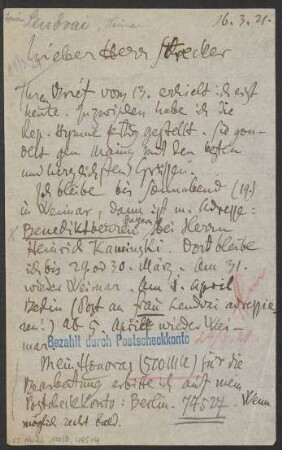 Lendvai, Weimar
16.3.21.
Lieber Herr Strecker
Ihren Brief vom 13. erhielt ich erst
heute. Inzwischen habe ich die
fertig gestellt. Sie gon-
delt gen Mainz mit den besten
und herzlichsten Grüssen.
Ich bleibe bis Sonnabend (19.)
in Weimar, dann ist m. Adresse:
Benediktbeuren bei Herrn
Heinrich Kaminski. Dort bleibe
ich bis 29. od 30. März. Am 31.
wieder Weimar. Am 1. April
Berlin (Post an Frau Lendvai adressie-
ren!) ab 5. April wieder Wei-
mar.
Bezahlt durch Postscheckkonto
Mein Honorar (500 Mk) für die
Bearbeitung erbitte ich auf mein
Postscheckkonto: Berlin. 77527. Wenn
möglich recht bald.